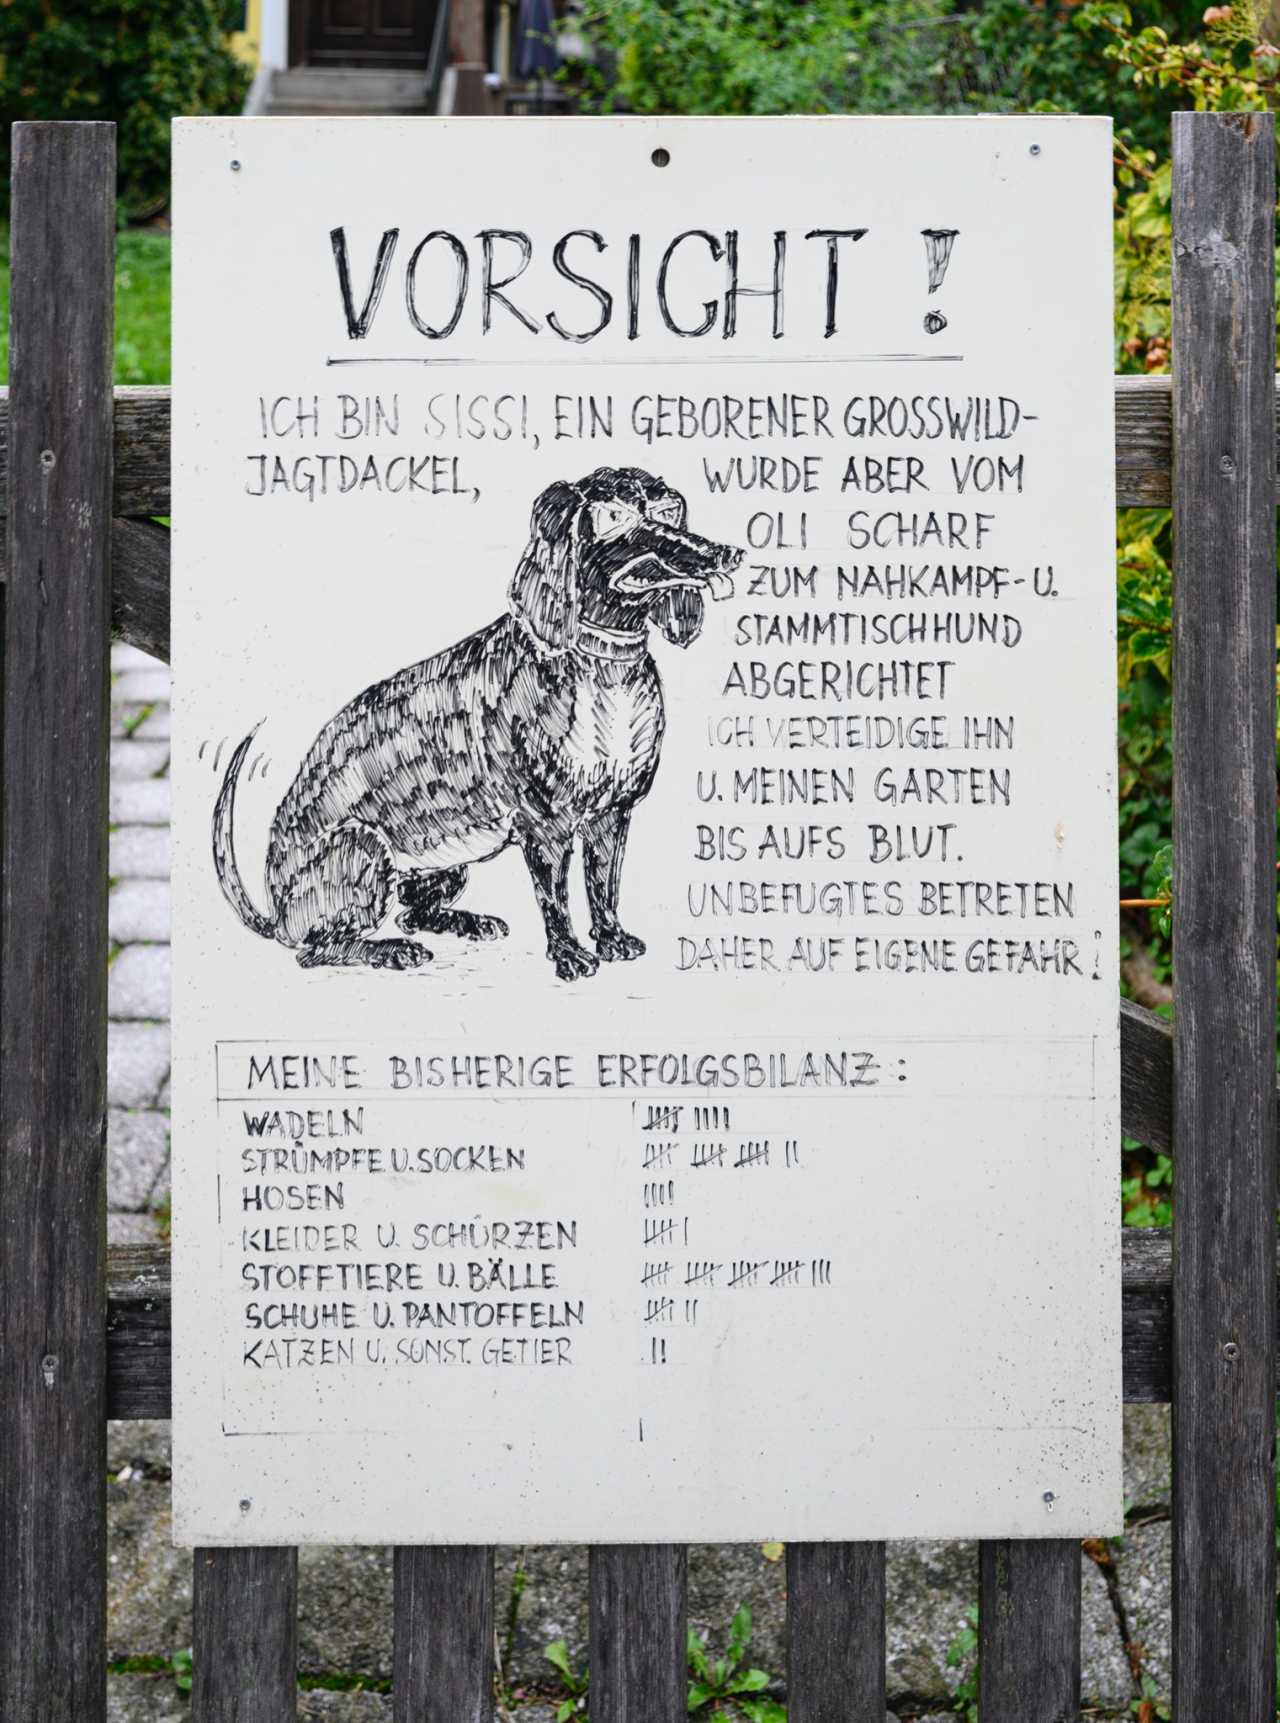 VORSICHT !
ICH BIN SISSI, EIN GEBORENER GROSSWILD-
JAGTDACKEL, WURDE ABER VOM
OLI SCHARF
ZUM NAHKAMPF- U.
STAMMTISCHHUND
ABGERICHTET
ICH VERTEIDIGE IHN
U. MEINEN GARTEN
BIS AUFS BLUT.
UNBEFUGTES BETRETEN
DAHER AUF EIGENE GEFAHR!
MEINE BISHERIGE ERFOLGSBILANZ:
WADELN
STRÜMPFE U. SOCKEN
HOSEN
KLEIDER U. SCHÜRZEN
STOFFTIERE U. BÄLLE
SCHUHE U. PANTOFFELN
KATZEN U. SONST. GETIER